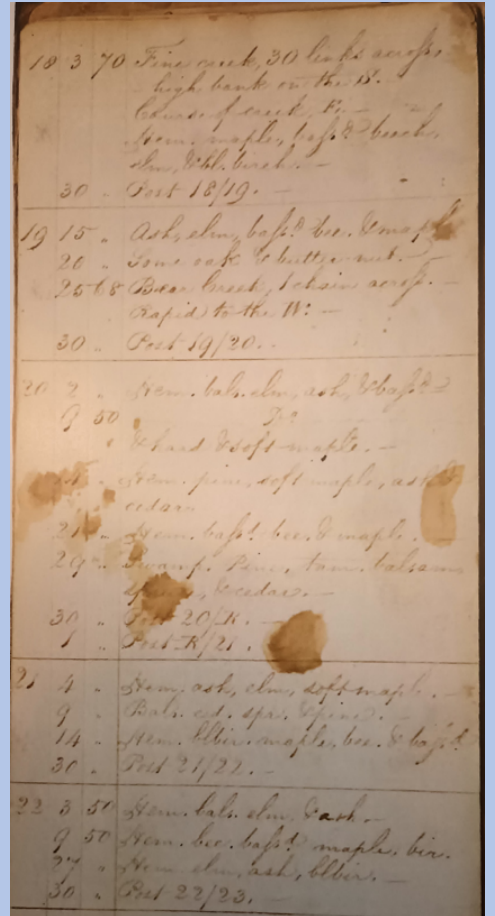 18 3 70 Fine creek, 30 links across,
high bank on the S. —
Course of creek, E. —
Hem. maple, bass.d beech,
elm, & bl. birch. —
30 „ Post 18/19. —
19 15 „ Ash, elm, bass.d bee. & maple
20 „ Some oak & butternut. —
25 68 Bear Creek, 1 chain across.
Rapid to the W. —
30 „ Post 19/20. —
20 2 „ Hem. bals. elm, ash, & bass.d
9 50 Do.
„ & hard & soft maple. —
„ Hem. pine, soft maple, ash &
cedar.
21 „ Hem. bass.d bee. & maple. —
29 „ Swamp. Pine, tam. balsam
& cedar. —
30 „ Post 20/R. —
1 „ Post R/21. —
21 4 „ Hem. ash, elm, soft maple. —
9 „ Bals. ced. spr. & pine. —
14 „ Hem. bl bir. maple, bee. & bass.d
30 „ Post 21/22. —
22 3 50 Hem. bals. elm, & ash. —
9 50 Hem. bee. bass.d maple, bir.
27 „ Hem. elm, ash, bl bir. —
30 „ Post 22/23. —